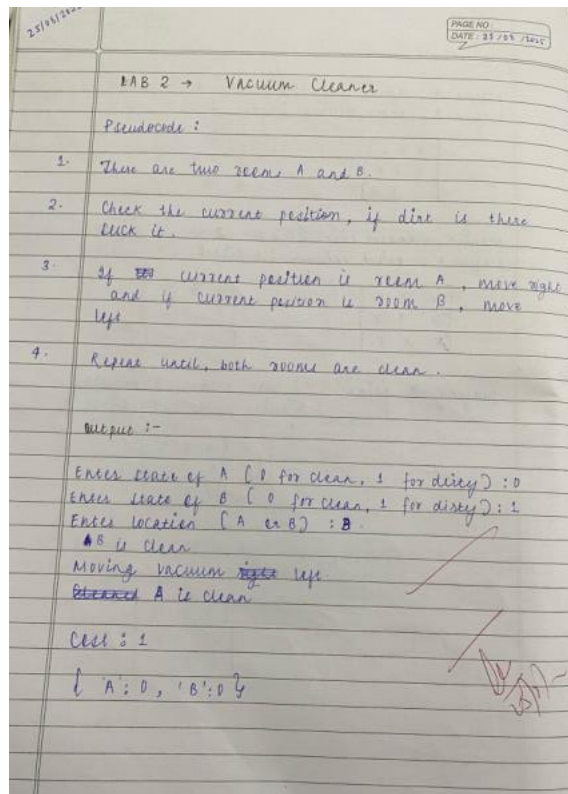 25/08/2025
PAGE NO:
DATE: 25/08/2025
LAB 2 → Vacuum Cleaner
Pseudocode :
1. There are two rooms A and B.
2. Check the current position, if dirt is there
suck it.
3. If current position is room A, move right
and if current position is room B, move
left
4. Repeat until, both rooms are clean.
Output :-
Enter state of A (0 for clean, 1 for dirty) : 0
Enter state of B (0 for clean, 1 for dirty) : 1
Enter location (A or B) : B
B is clean
Moving vacuum left
A is clean
Cost : 1
{ 'A': 0, 'B': 0 }